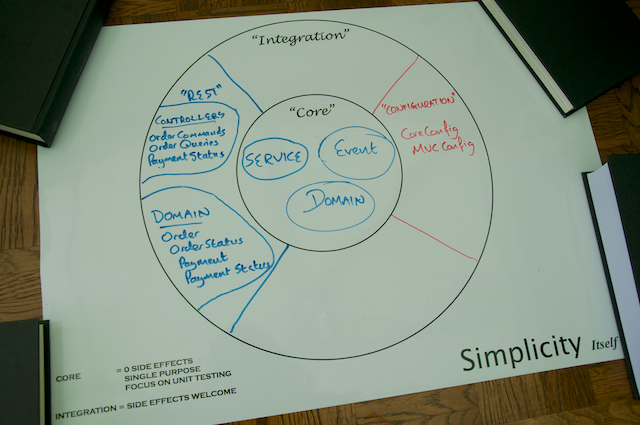 "Integration"
"REST"
CONTROLLERS
Order Commands
Order Queries
Payment Status
DOMAIN
Order
Order Status
Payment
Payment Status
"Core"
SERVICE
Event
DOMAIN
"CONFIGURATION"
Core Config
MVC Config
CORE = 0 SIDE EFFECTS
SINGLE PURPOSE
FOCUS ON UNIT TESTING
INTEGRATION = SIDE EFFECTS WELCOME
Simplicity Itself